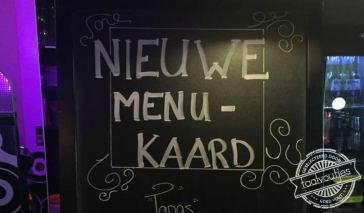 NIEUWE
MENU-
KAARD
"Tapas"
taalvoutjes